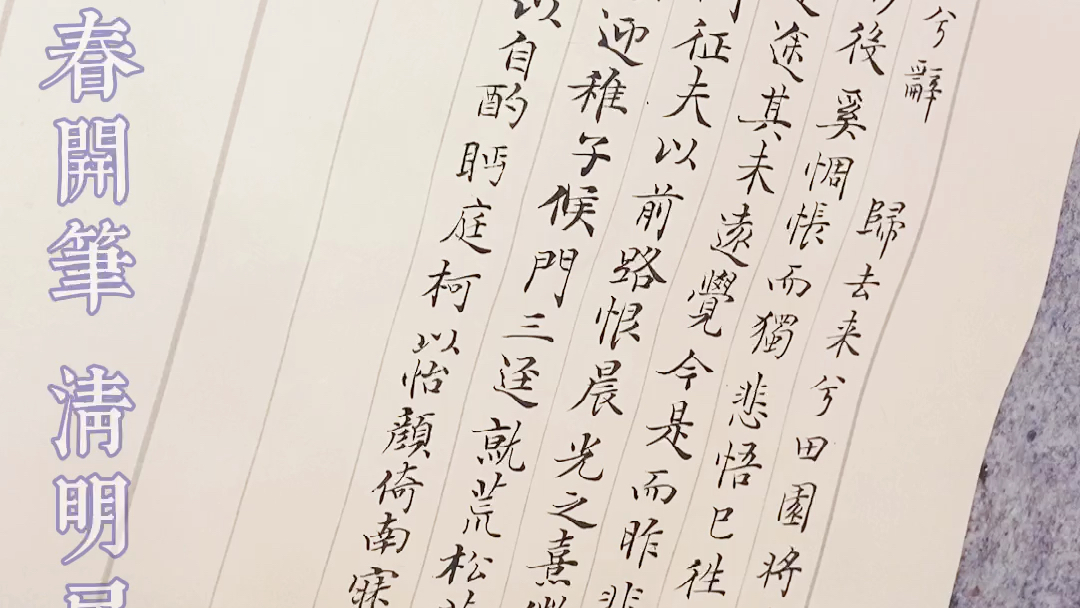 兮辭 歸去来兮田園將
役奚惆悵而獨悲悟已往
途其未遠覺今是而昨非
征夫以前路恨晨光之熹微
迎稚子候門三迳就荒松
自酌眄庭柯以怡顏倚南
春開筆 清明